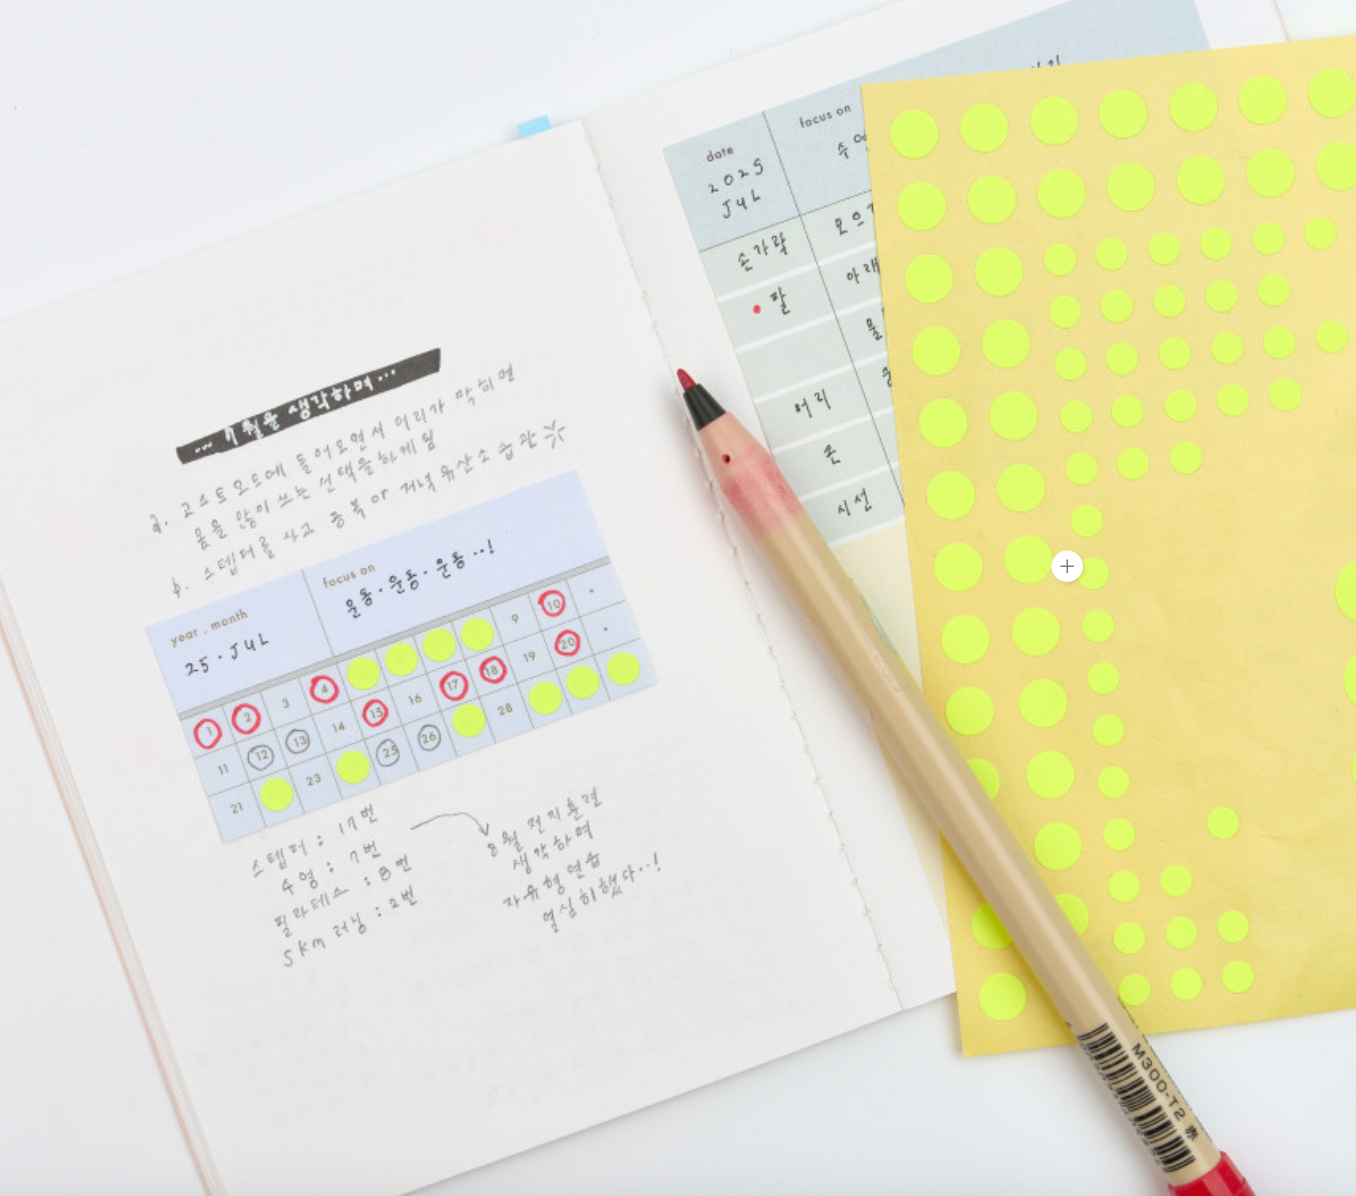 ... 7월을 생각하며...
a. 고스트모드에 들어오면서 머리가 막히면
몸을 많이 쓰는 선택을 하게 됨
b. 스텝퍼를 사고 공복 or 저녁 유산소 습관
year . month
25 . JUL
focus on
운동 . 운동 . 운동 ..!
1 2 3 4 9 10 .
11 12 13 14 15 16 17 18 19 20 .
21 23 25 26 28
스텝퍼 : 17번
수영 : 7번
필라테스 : 8번
5km 러닝 : 2번
8월 전지훈련
생각하며
자유형 연습
열심히 했다..!
date
2025
JUL
focus on
손가락
팔
아래
머리
손
시선
M300-T2 赤